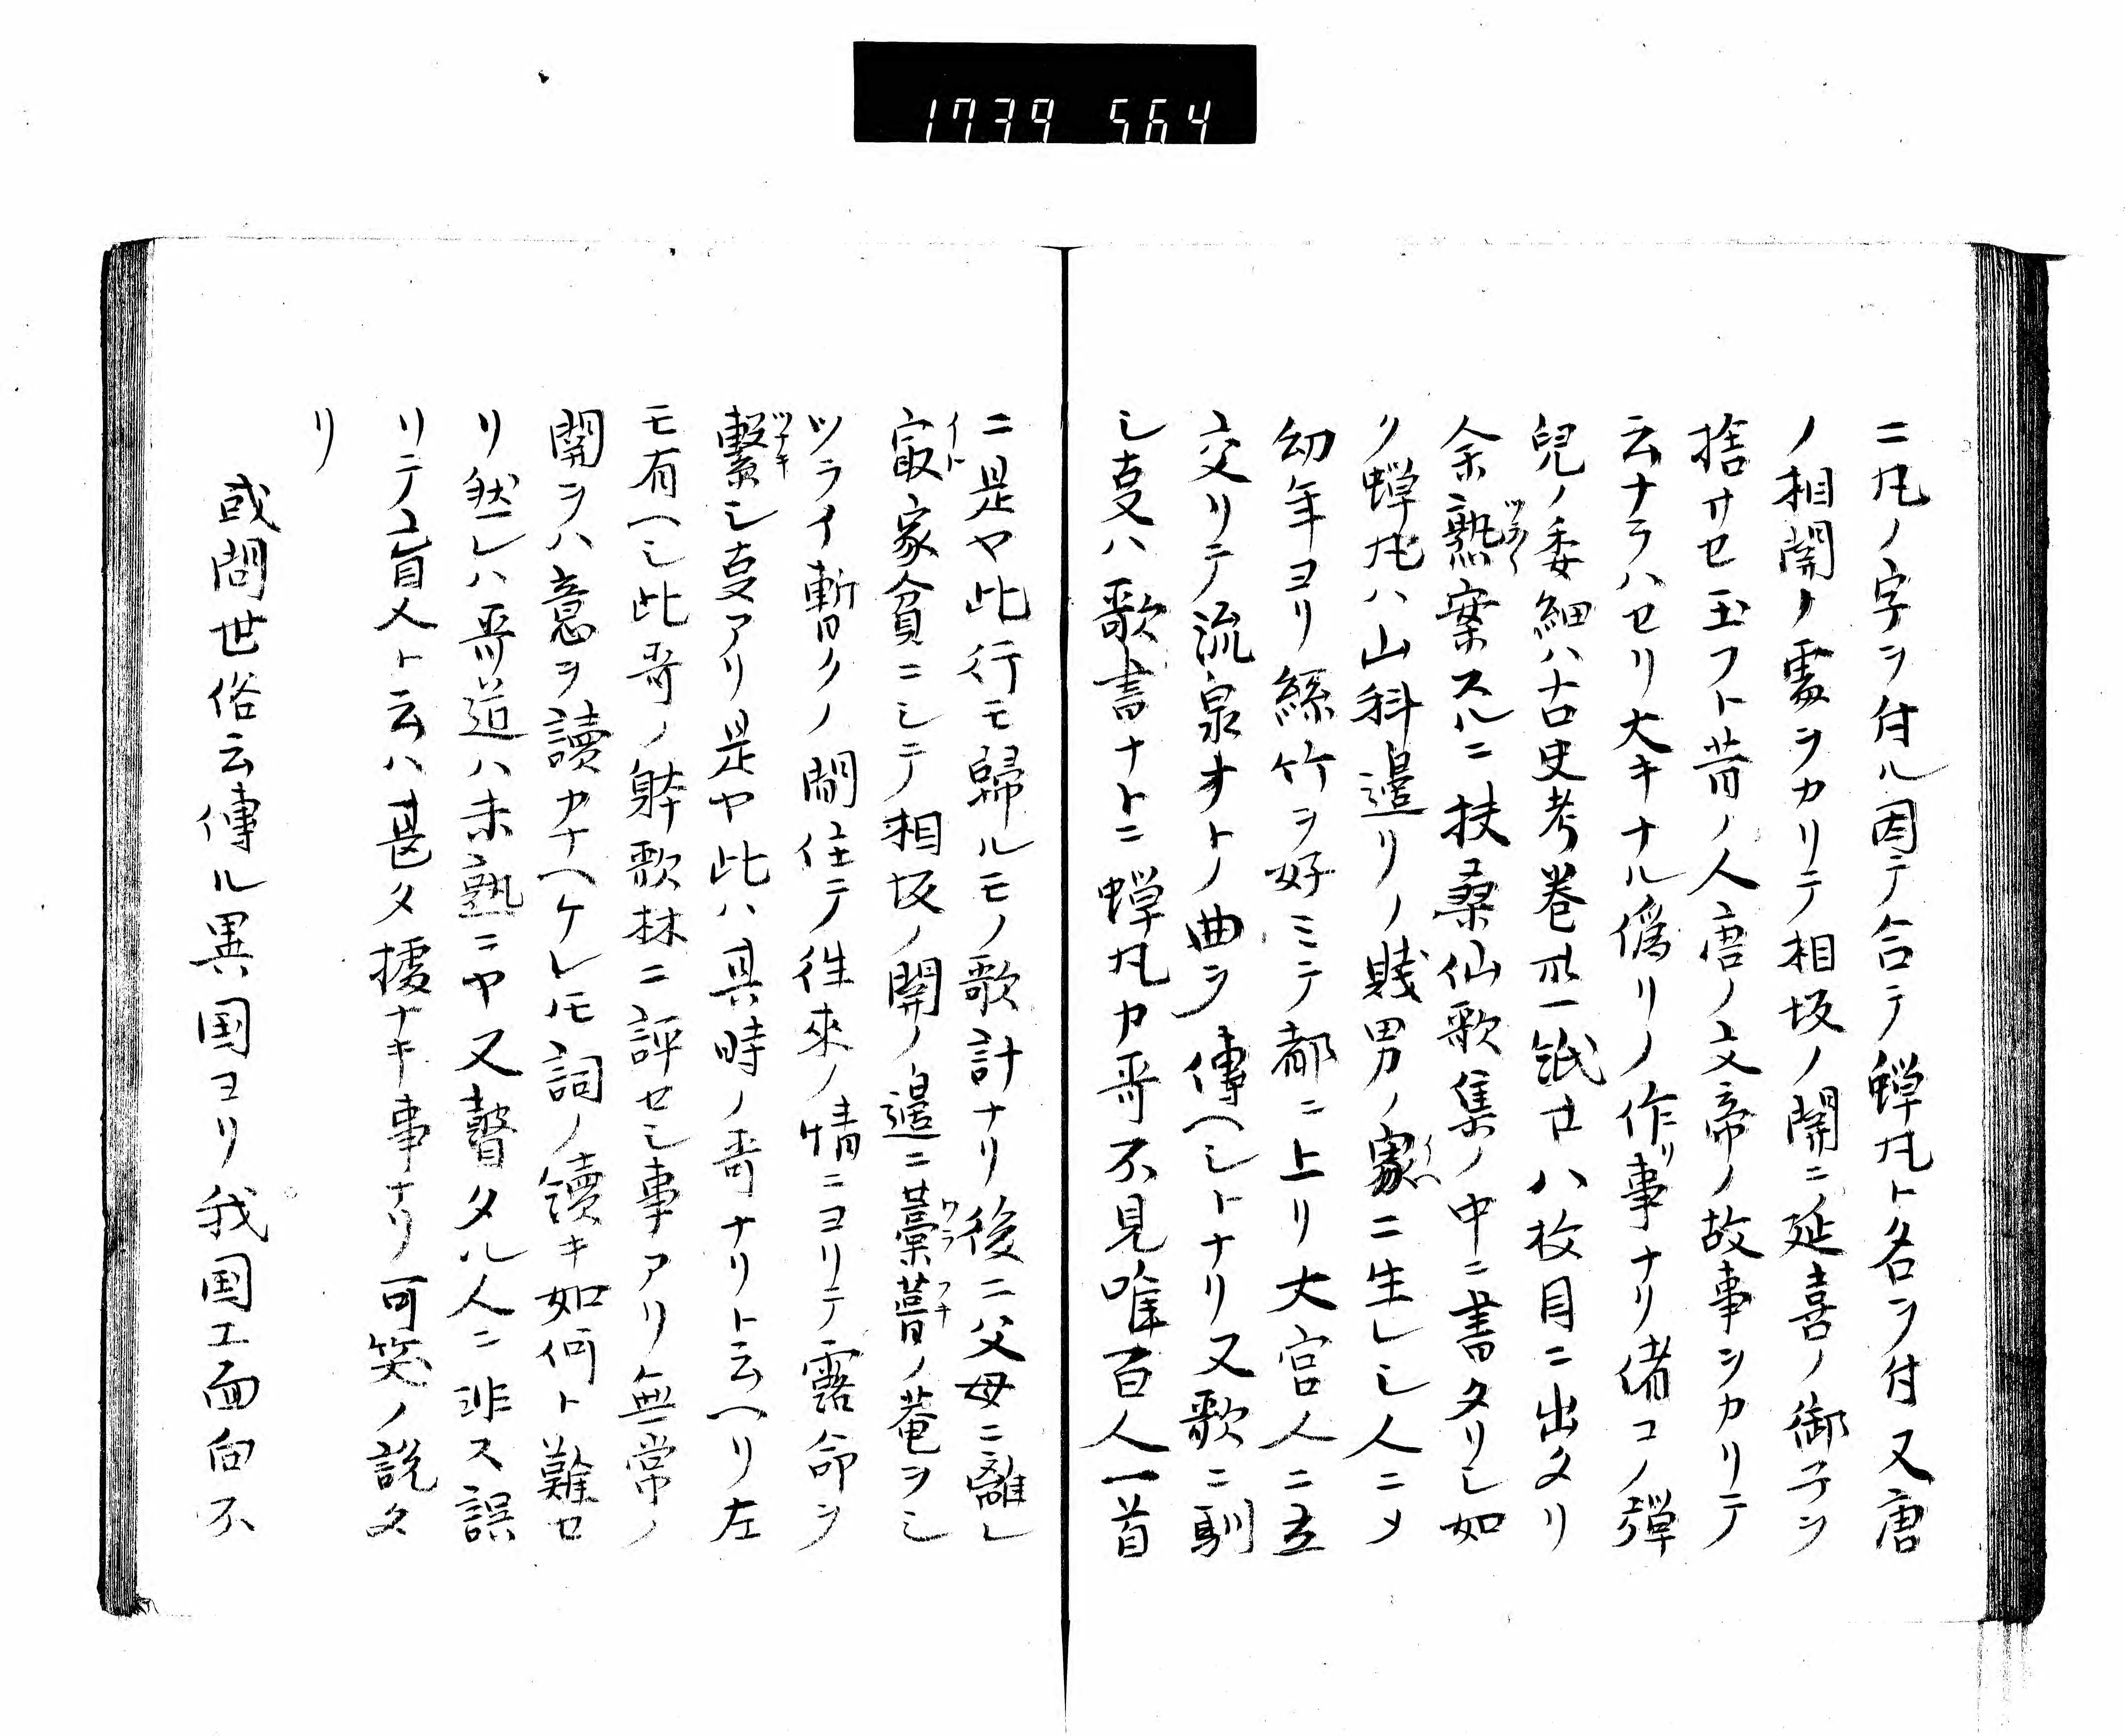 1739 564
ニ丸ノ字ヲ付ル因テ合テ蝉丸ト名ヲ付又唐
ノ相関ノ処ヲカリテ相坂ノ関ニ延喜ノ御子ヲ
捨サセ玉フト昔ノ人唐ノ文帝ノ故事ヲカリテ
云ナラハセリ大キナル偽リノ作リ事ナリ偖コノ蝉
兒ノ委細ハ古史考巻 一 八枚目ニ出タリ
余熟案スルニ扶桑仙歌集ノ中ニ書タリシ如
ク蝉丸ハ山科邉リノ賎男ノ家ニ生レシ人ニメ
幼年ヨリ絲竹ヲ好ミテ都ニ上リ大宮人ニ立
交リテ流泉オトノ曲ヲ傳ヘシトナリ又歌ニ馴
シ叓ハ歌書ナトニ蝉丸カ哥不見唯百人一首
ニ是ヤ此行モ歸ルモノ歌計ナリ後ニ父母ニ離レ
㝡家貧ニシテ相坂ノ関ノ邉ニ藁葺ノ菴ヲシ
ツライ暫クノ間住テ徃來ノ情ニヨリテ露命ヲ
繋シ叓アリ是ヤ此ハ其時ノ哥ナリト云ヘリ左
モ有ヘシ此哥ノ躰歌林ニ評セシ事アリ無常ノ
関ヲハ意ヲ讀カナヘケレ𪜈詞ノ續キ如何ト難セ
リ然レハ哥道ハ未熟ニヤ又瞽タル人ニ非ス誤
リテ盲人ト云ハ甚タ據ナキ事ナリ可笑ノ説タ
リ
或問世俗云傳ル異国ヨリ我国エ面向不